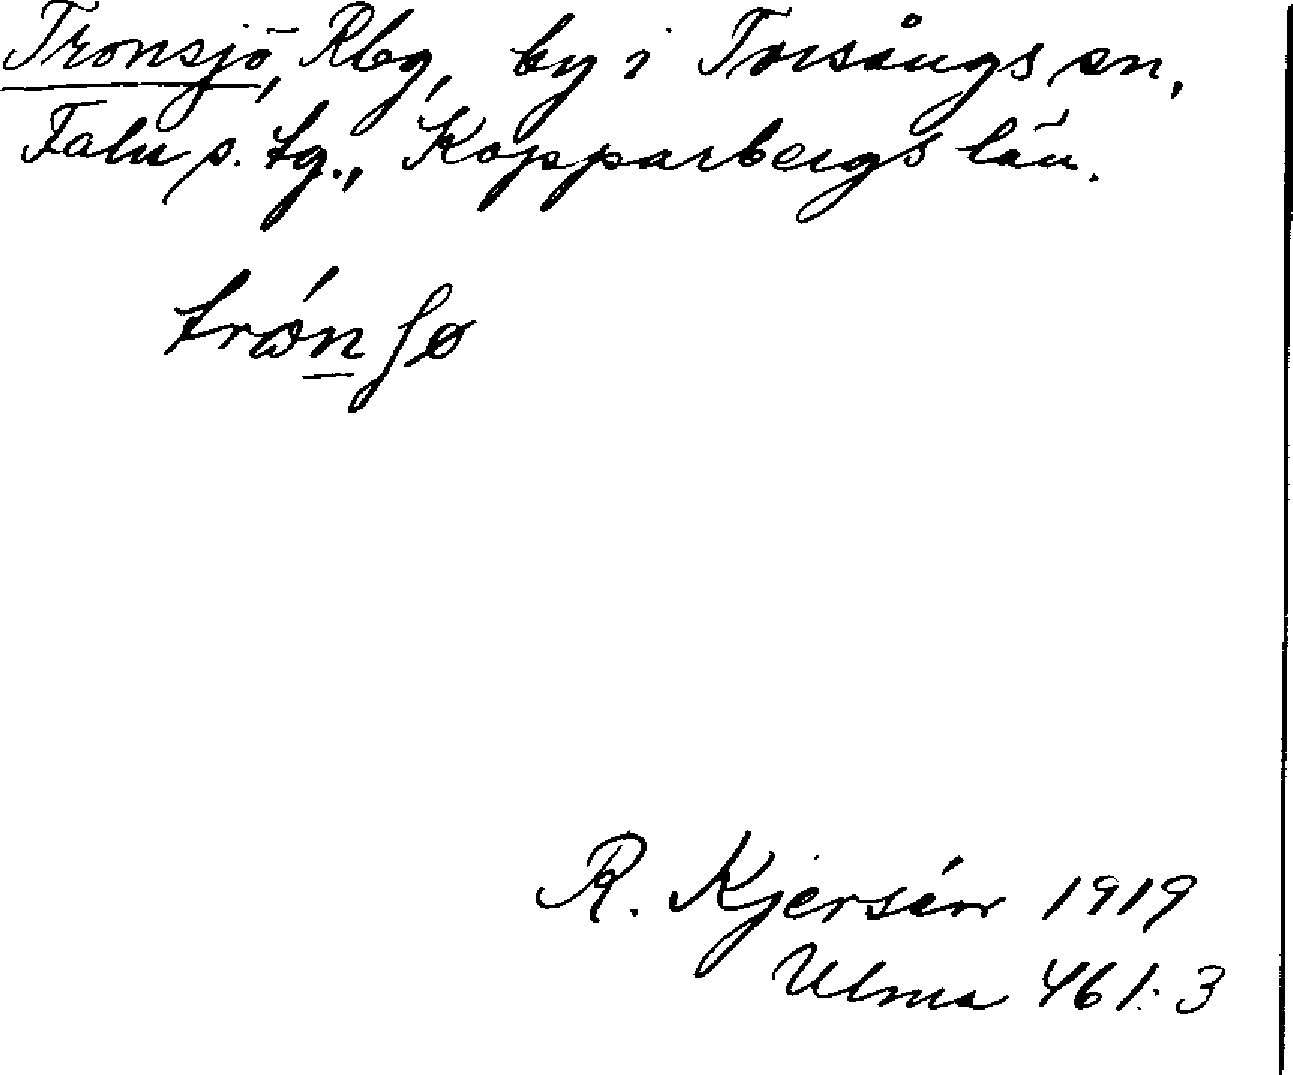 Tronsjö, Rbg, by i Torsångs sn,
Falu s. tg., Kopparbergs län.
trón ʃø
R. Kjersén 1919
Ulma 461:3